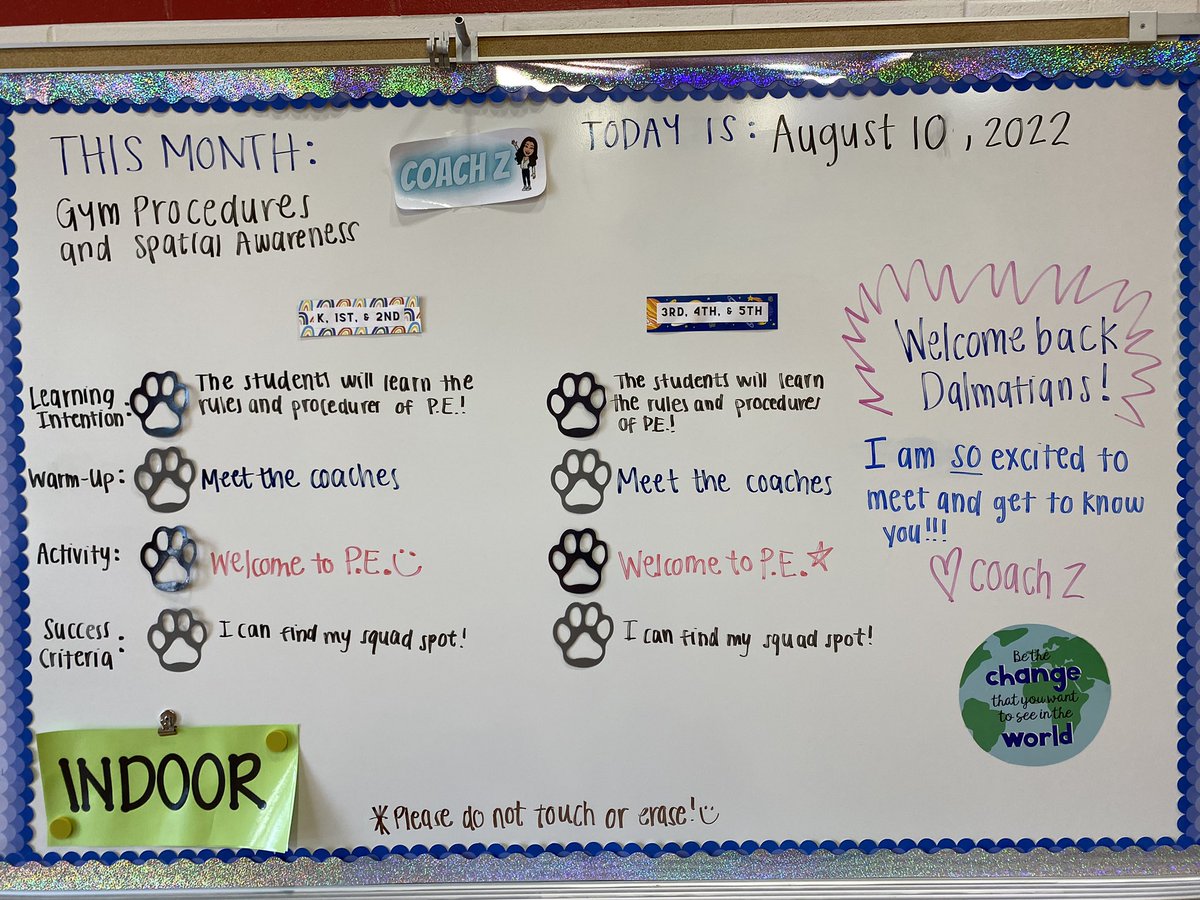 THIS MONTH:
Gym Procedures
and Spatial Awareness
COACH Z
TODAY IS: August 10, 2022
K, 1ST, & 2ND
3RD, 4TH, & 5TH
Learning
Intention:
The students will learn the
rules and procedurer of P.E.!
The students will learn
the rules and procedures
of P.E.!
Warm-Up:
Meet the coaches
Meet the coaches
Activity:
Welcome to P.E.
Welcome to P.E.
Success
Criteria:
I can find my squad spot!
I can find my squad spot!
Welcome back
Dalmatians!
I am so excited to
meet and get to know
you!!!
coach Z
Be the
change
that you want
to see in the
world
INDOOR
*Please do not touch or erase!